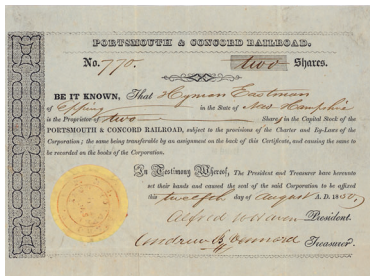 PORTSMOUTH & CONCORD RAILROAD.
No. 770. two Shares.
BE IT KNOWN, That Hyman Eastman
of Epping in the State of New Hampshire
is the Proprietor of two Shares in the Capital Stock of the
PORTSMOUTH & CONCORD RAILROAD, subject to the provisions of the Charter and By-Laws of the
Corporation; the same being transferable by an assignment on the back of this Certificate, and causing the same to
be recorded on the books of the Corporation.
In Testimony Whereof, The President and Treasurer have hereunto
set their hands and caused the seal of the said Corporation to be affixed
this twelfth day of August A. D. 1850.
Alfred W Haven President.
Andrew Treasurer.